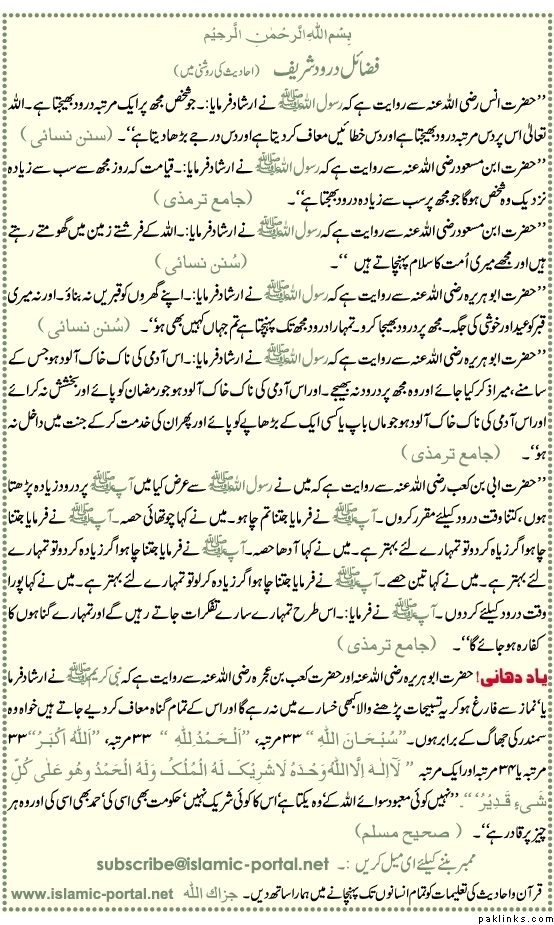 بِسْمِ اللهِ الرَّحْمٰنِ الرَّحِيْمِ
فضائل درود شریف (احادیث کی روشنی میں)
’’حضرت انس رضی اللہ عنہ سے روایت ہے کہ رسول اللہ ﷺ نے ارشاد فرمایا:۔ جو شخص مجھ پر ایک مرتبہ درود بھیجتا ہے۔ اللہ
تعالیٰ اس پر دس مرتبہ درود بھیجتا ہے اور دس خطائیں معاف کر دیتا ہے اور دس درجے بڑھا دیتا ہے‘‘۔ (سنن نسائی)
’’حضرت ابن مسعود رضی اللہ عنہ سے روایت ہے کہ رسول اللہ ﷺ نے ارشاد فرمایا:۔ قیامت کہ روز مجھ سے سب سے زیادہ
نزدیک وہ شخص ہوگا جو مجھ پر سب سے زیادہ درود بھجتا ہے‘‘۔ (جامع ترمذی)
’’حضرت ابن مسعود رضی اللہ عنہ سے روایت ہے کہ رسول اللہ ﷺ نے ارشاد فرمایا:۔ اللہ کے فرشتے زمین میں گھومتے رہتے
ہیں اور مجھے میری اُمت کا سلام پہنچاتے ہیں ‘‘۔ (سُنن نسائی)
’’حضرت ابو ہریرہ رضی اللہ عنہ سے روایت ہے کہ رسول اللہ ﷺ نے ارشاد فرمایا:۔ اپنے گھروں کو قبریں نہ بناؤ۔ اور نہ میری
قبر کو عید اور خوشی کی جگہ۔ مجھ پر درود بھیجا کرو۔ تمہارا درود مجھ تک پہنچتا ہے تم جہاں کہیں بھی ہو‘‘۔ (سُنن نسائی)
’’حضرت ابو ہریرہ رضی اللہ عنہ سے روایت ہے کہ رسول اللہ ﷺ نے ارشاد فرمایا:۔ اس آدمی کی ناک خاک آلود ہو جس کے
سامنے، میرا ذکر کیا جائے اور وہ مجھ پر درود نہ بھیجے۔ اور اس آدمی کی ناک خاک آلود ہو جو رمضان کو پائے اور بخشش نہ کرائے
اور اس آدمی کی ناک خاک آلود ہو جو ماں باپ یا کسی ایک کے بڑھاپے کو پائے اور پھر ان کی خدمت کر کے جنت میں داخل نہ
ہو‘‘۔ (جامع ترمذی)
’’حضرت ابی بن کعب رضی اللہ عنہ سے روایت ہے کہ میں نے رسول اللہ ﷺ سے عرض کیا میں آپ ﷺ پر درود زیادہ پڑھتا
ہوں، کتنا وقت درود کیلئے مقرر کروں۔ آپ ﷺ نے فرمایا جتنا تم چاہو۔ میں نے کہا چوتھائی حصہ۔ آپ ﷺ نے فرمایا جتنا
چاہو اگر زیادہ کردو تو تمہارے لئے بہتر ہے۔ میں نے کہا آدھا حصہ۔ آپ ﷺ نے فرمایا جتنا چاہو اگر زیادہ کردو تو تمہارے
لئے بہتر ہے۔ میں نے کہا تین حصے۔ آپ ﷺ نے فرمایا جتنا چاہو اگر زیادہ کرلو تو تمہارے لئے بہتر ہے۔ میں نے کہا پورا
وقت درود کیلئے کردوں۔ آپ ﷺ نے فرمایا:۔ اس طرح تمہارے سارے تفکرات جاتے رہیں گے اور تمہارے گناہوں کا
کفارہ ہوجائے گا‘‘۔ (جامع ترمذی)
یاد دھانی! حضرت ابو ہریرہ رضی اللہ عنہ اور حضرت کعب بن عجرہ رضی اللہ عنہ سے روایت ہے کہ نبی کریم ﷺ نے ارشاد فرما
یا’نماز سے فارغ ہو کر یہ تسبیحات پڑھنے والا کبھی خسارے میں نہ رہے گا اور اس کے تمام گناہ معاف کر دیے جاتے ہیں خواہ وہ
سمندر کی جھاگ کے برابر ہوں۔ ’’سُبْحَانَ اللّٰهِ‘‘ ۳۳ مرتبہ، ’’اَلْحَمْدُ لِلّٰهِ‘‘ ۳۳ مرتبہ، ’’اَللّٰهُ اَكْبَرُ‘‘ ۳۳
مرتبہ یا ۳۴ مرتبہ اور ایک مرتبہ ’’لَآ اِلٰهَ اِلَّا اللّٰهُ وَحْدَهٗ لَا شَرِيْكَ لَهٗ لَهُ الْمُلْكُ وَلَهُ الْحَمْدُ وَهُوَ عَلٰى كُلِّ
شَىْءٍ قَدِيْرٌ‘‘۔ ’’نہیں کوئی معبود سوائے اللہ کے‘ وہ یکتا ہے‘ اس کا کوئی شریک نہیں‘ حکومت بھی اسی کی‘ حمد بھی اسی کی اور وہ ہر
چیز پر قادر ہے‘‘۔ (صحیح مسلم)
ممبر بننے کیلئے ای میل کریں :۔ subscribe@islamic-portal.net
قرآن و احادیث کی تعلیمات کو تمام انسانوں تک پہنچانے میں ہمارا ساتھ دیں۔ جزاک اللہ www.islamic-portal.net
paklinks.com